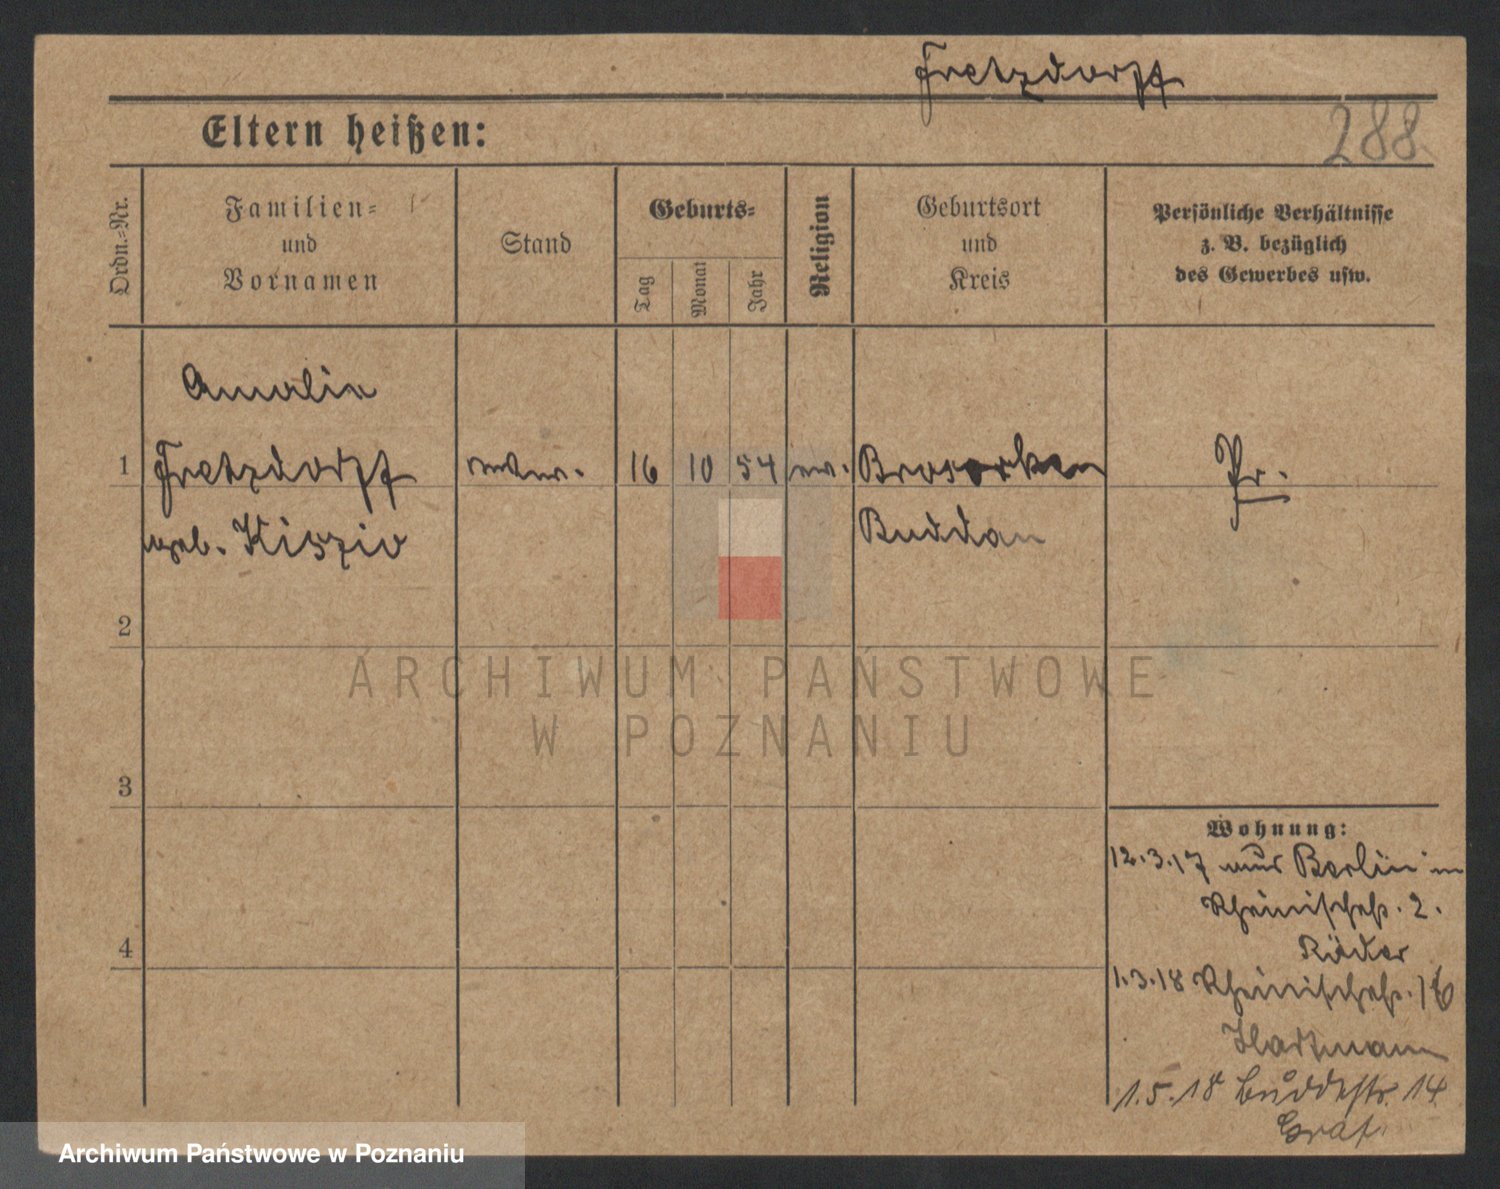 Fretzdorff
288
Eltern heißen:
Ordn.-Nr.
Familien-
und
Vornamen
Stand
Geburts-
Tag
Monat
Jahr
Religion
Geburtsort
und
Kreis
Persönliche Verhältnisse
z. B. bezüglich
des Gewerbes usw.
Amalie
1 Fretzdorff 16 10 54 ev. Pr.
geb. Kiszio Buddan
2
ARCHIWUM PAŃSTWOWE
W POZNANIU
3
Wohnung:
12.3.17 aus Berlin in
Rheinischestr. 2.
Räder
4
1.3.18 Rheinischestr. 16
Hartmann
1.5.18 Buddestr. 14
Graf
Archiwum Państwowe w Poznaniu